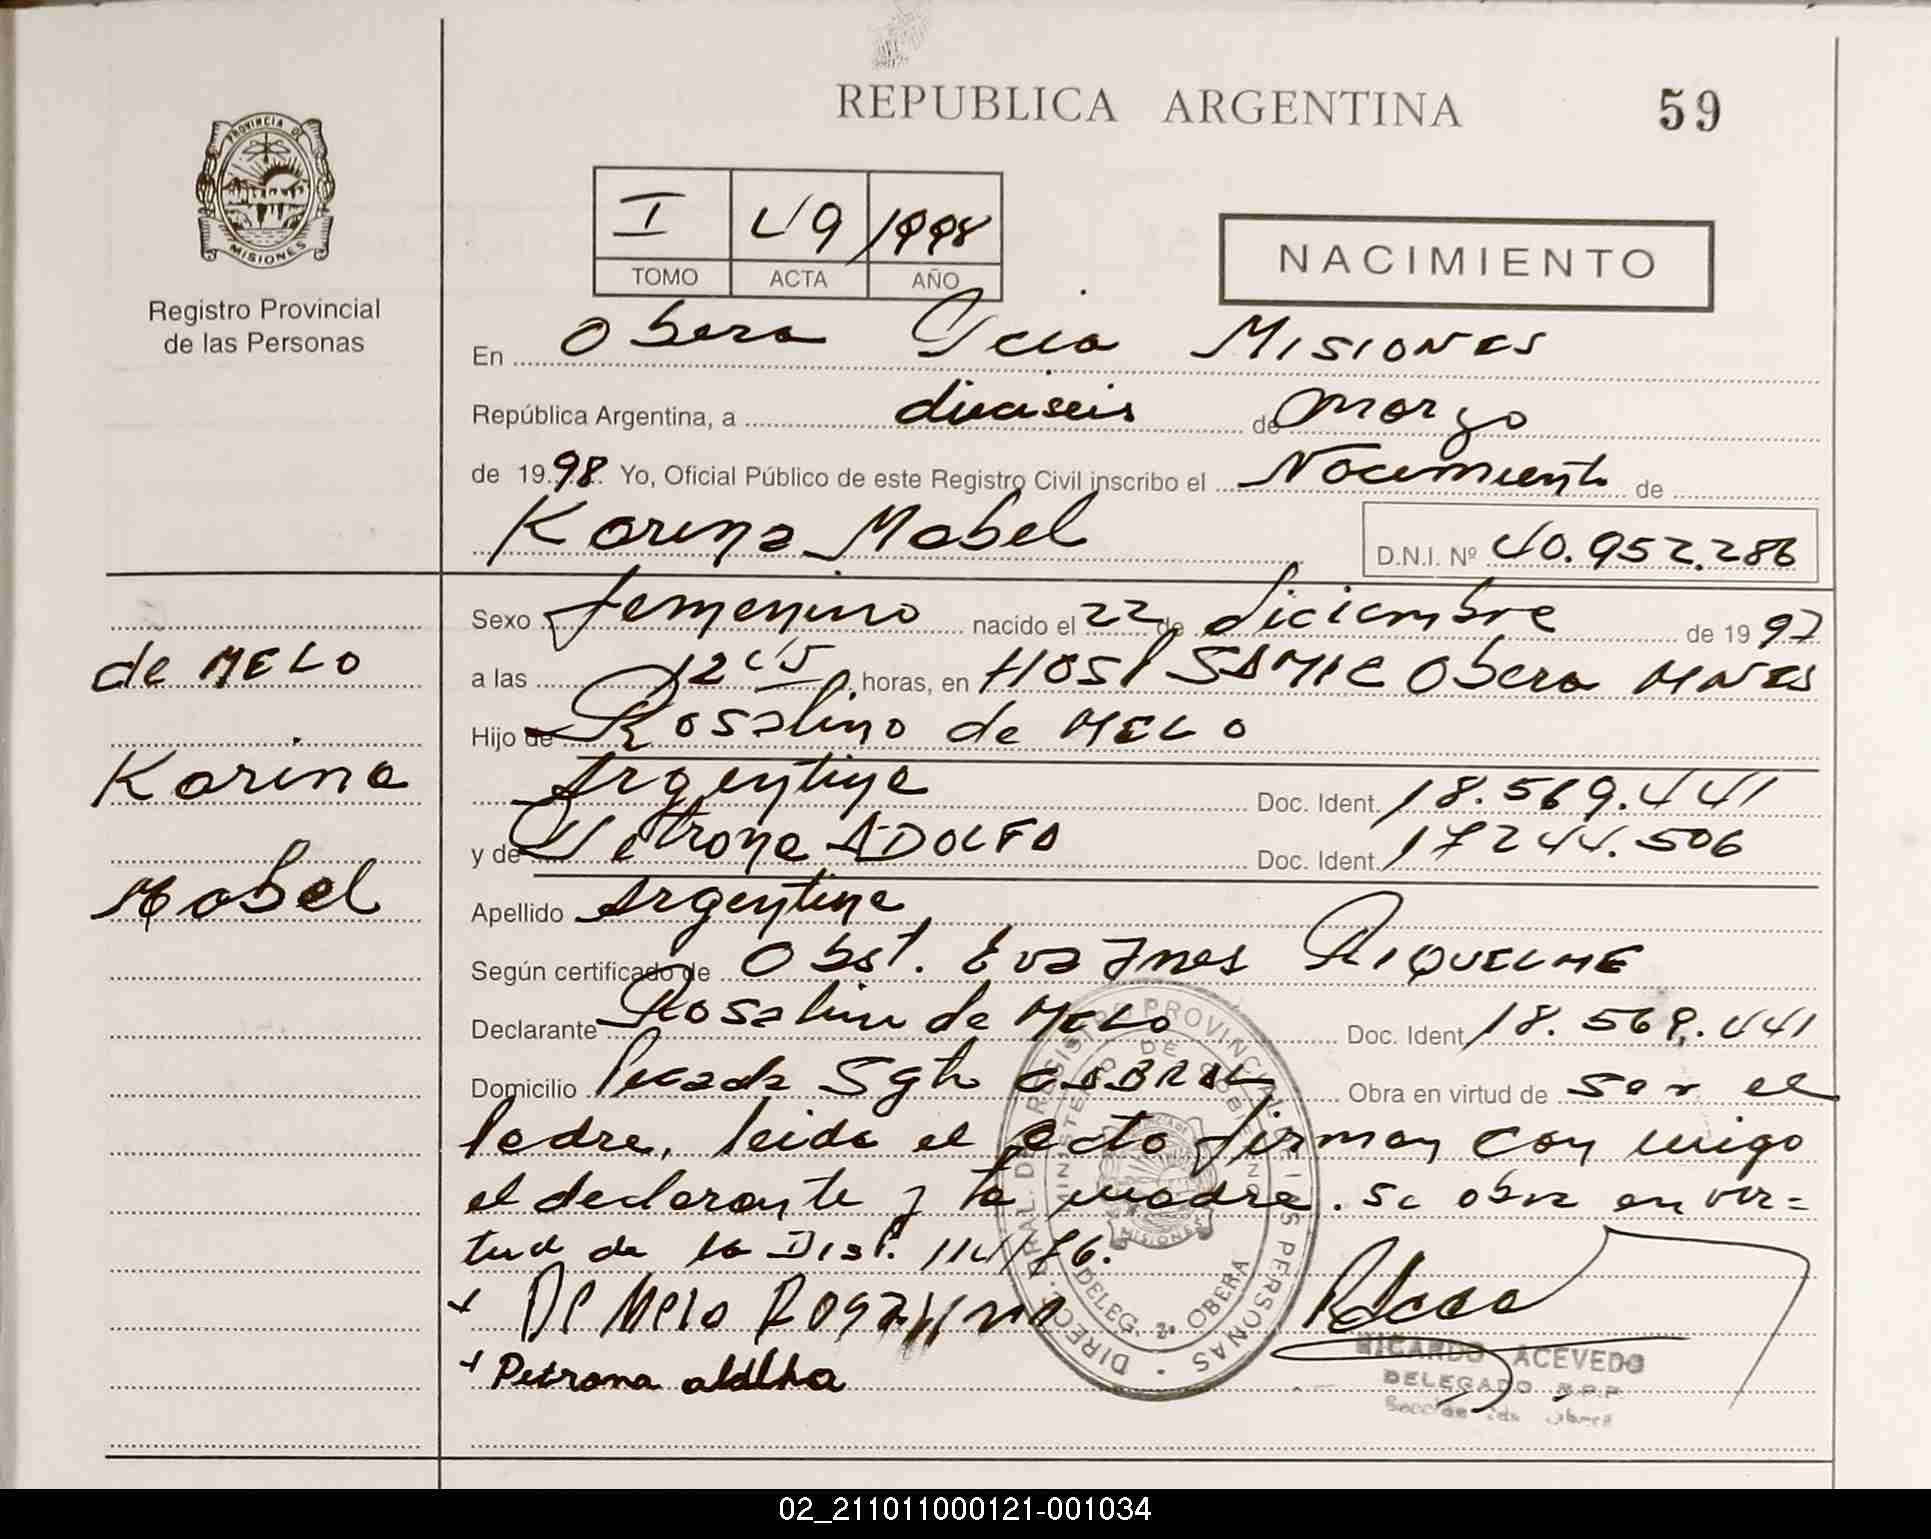 REPUBLICA ARGENTINA
59
PROVINCIA DE
MISIONES
Registro Provincial
de las Personas
I 49 1998
TOMO ACTA AÑO
NACIMIENTO
En Obera Pcia MISIONES
República Argentina, a dieciseis de Marzo
de 1998. Yo, Oficial Público de este Registro Civil inscribo el Nacimiento de
Karina Mabel
D.N.I. Nº 40.952.286
Sexo femenino nacido el 22 de diciembre de 1997
a las 12 45 horas, en HOSP SAMIC Obera MNES
Hijo de Rosalino de MELO
Argentina Doc. Ident. 18.569.441
y de Petrona ADOLFO Doc. Ident. 17244.506
Apellido Argentina
Según certificado de Obst. Eva Ines RIQUELME
Declarante Rosalino de MELO Doc. Ident 18.569.441
Domicilio Picada Sgto CABRAL Obra en virtud de ser el
Padre, leida el acta firman con migo
el declarante y la madre. Se obra en vir=
tud de la Disp. 114/76.
+ De Melo Rosalino
+ Petrona
de MELO
Karina
Mabel
DIRECC. GRAL. DE REGISTRO PROVINCIAL DE LAS PERSONAS
MINISTERIO DE GOBIERNO
MISIONES
DELEG. 2a. OBERA
RICARDO ACEVEDO
DELEGADO R.P.P.
02_211011000121-001034